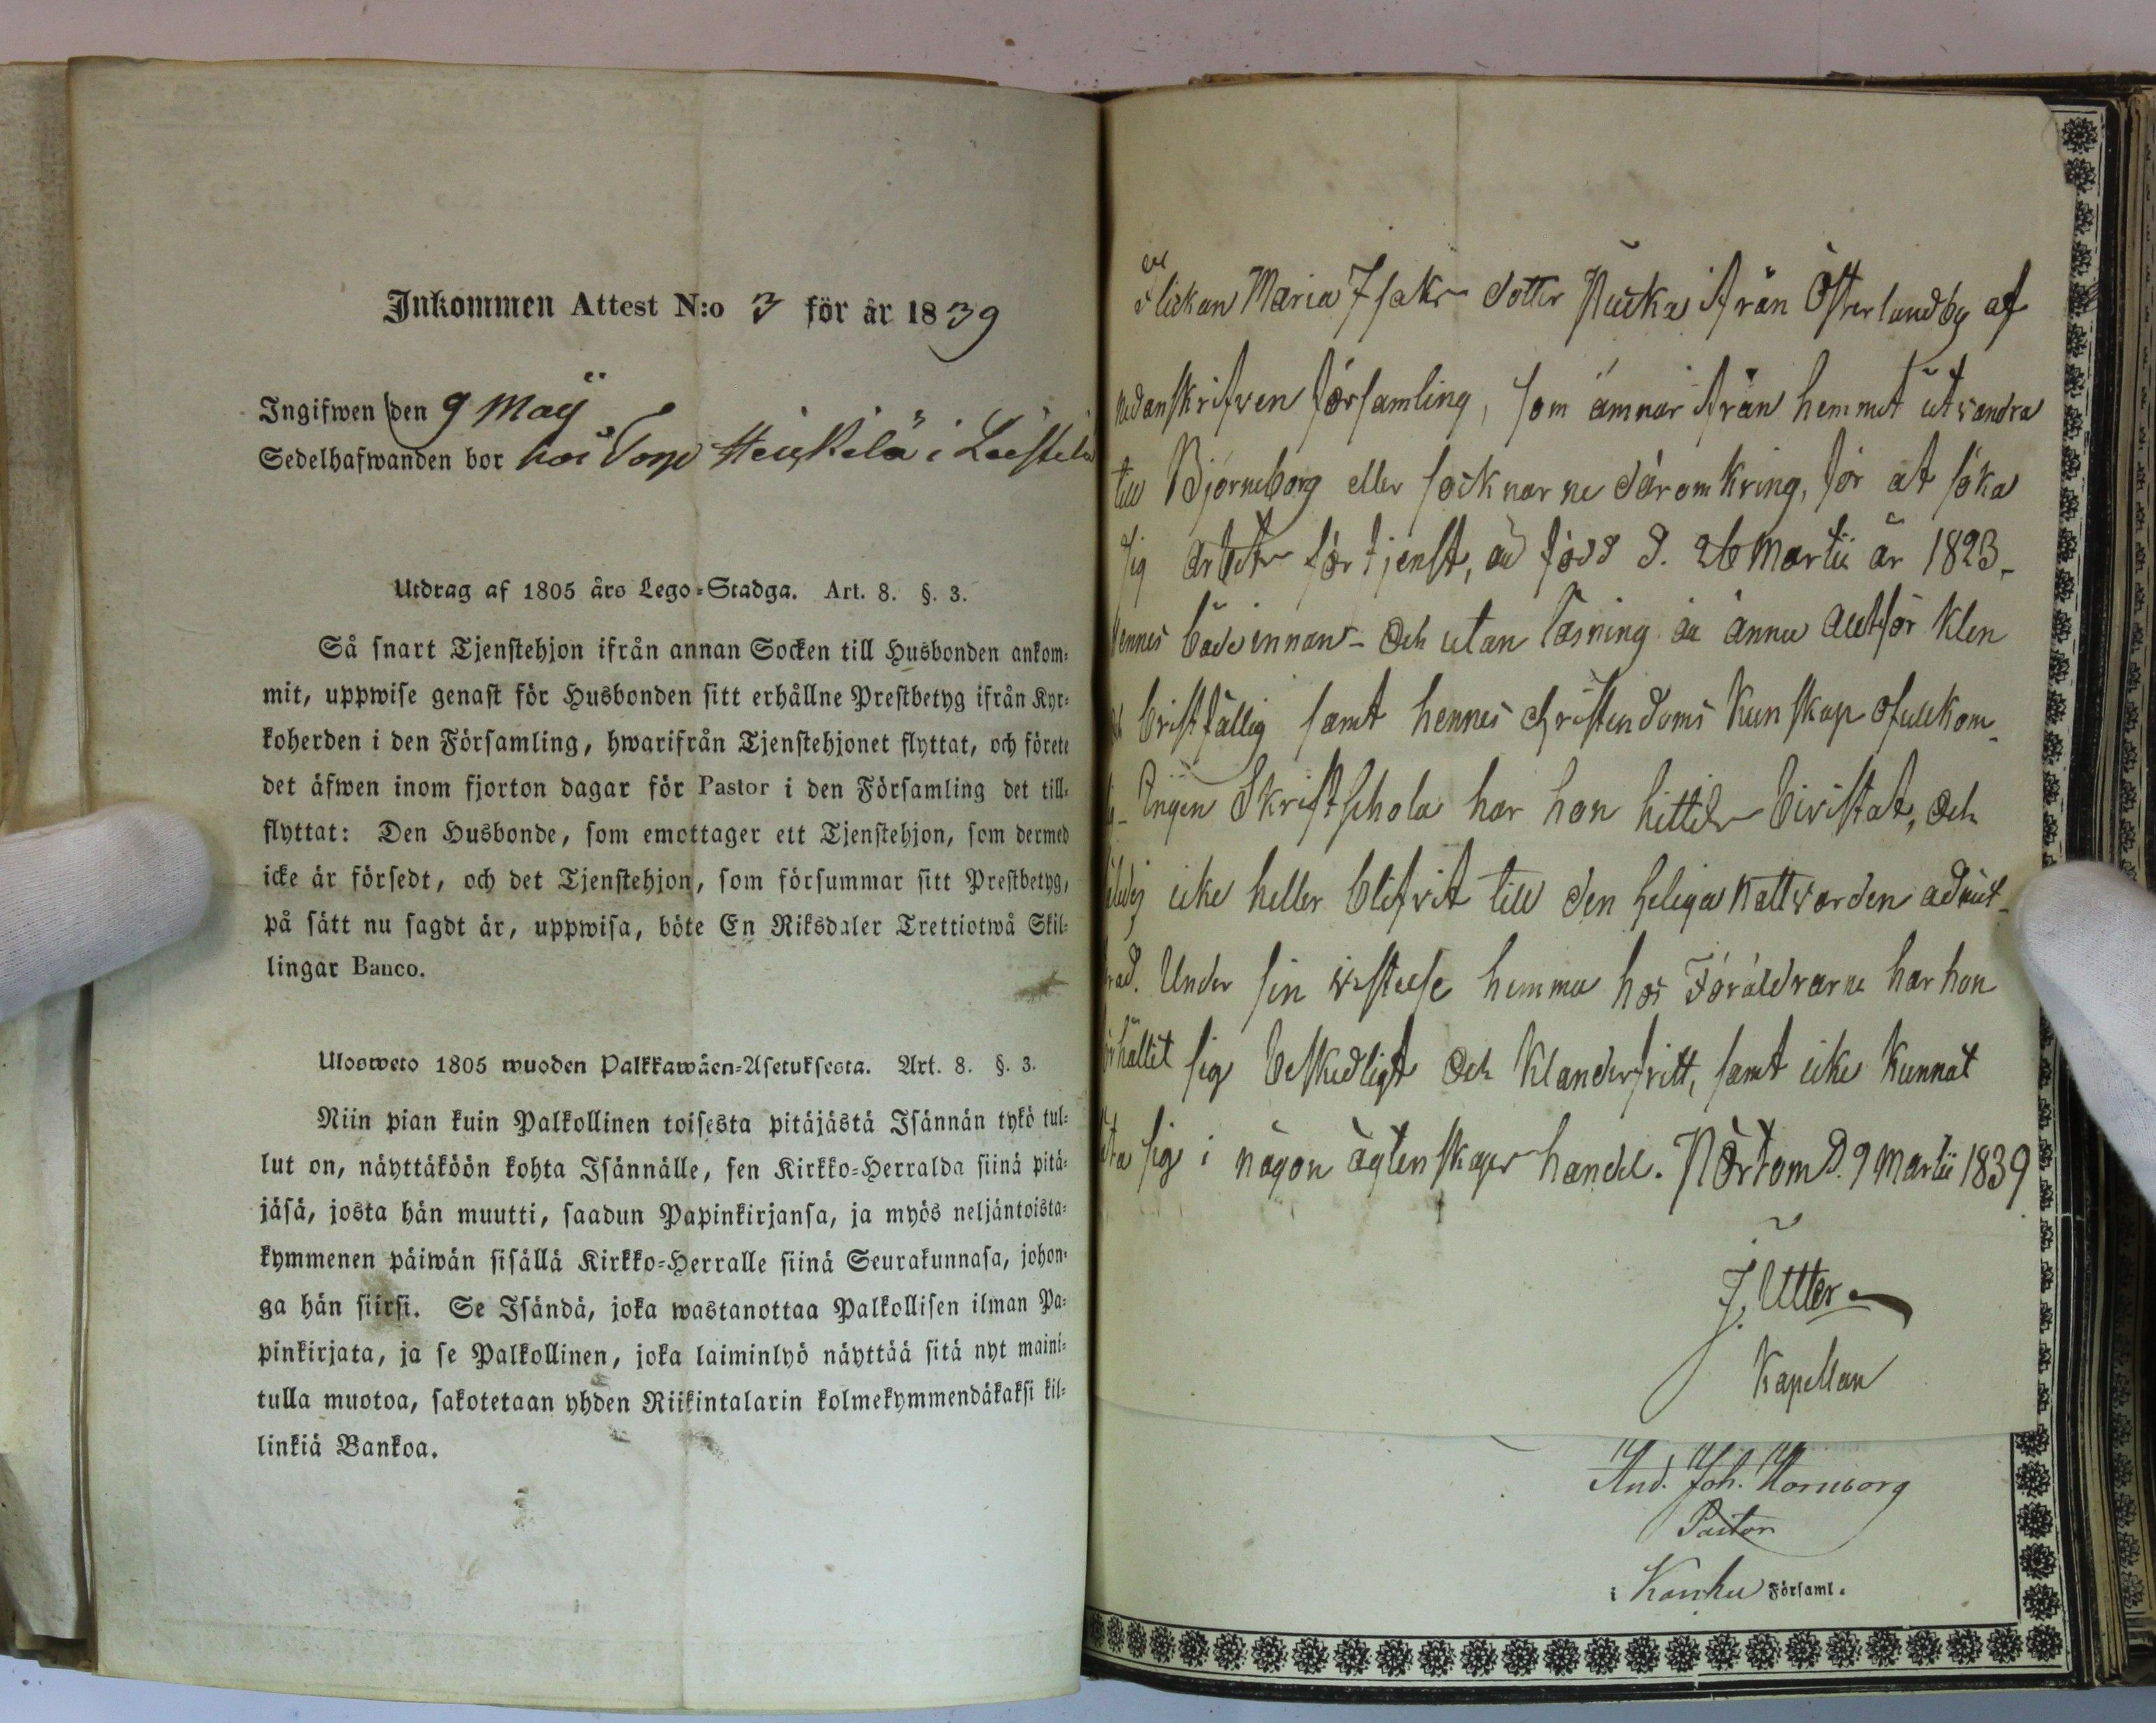 Inkommen Attest N:o 3 för år 1839
Ingifwen den 9 Maij
Sedelhafwanden bor hos Torp Heickilä i
Utdrag af 1805 års Lego-Stadga. Art. 8. §. 3.
Så snart Tjenstehjon ifrån annan Socken till Husbonden ankom-
mit, uppwise genast för Husbonden sitt erhållne Prestbetyg ifrån Kyr-
koherden i den Församling, hwarifrån Tjenstehjonet flyttat, och förete
det äfwen inom fjorton dagar för Pastor i den Församling det till-
flyttat: Den Husbonde, som emottager ett Tjenstehjon, som dermed
icke är försedt, och det Tjenstehjon, som försummar sitt Prestbetyg,
på sätt nu sagdt är, uppwisa, böte En Riksdaler Trettiotwå Skil-
lingar Banco.
Ulosweto 1805 wuoden Palkkawäen-Asetuksesta. Art. 8. §. 3.
Niin pian kuin Palkollinen toisesta pitäjästä Isännän tykö tul-
lut on, näyttäköön kohta Isännälle, sen Kirkko-Herralda siinä pitä-
jäsä, josta hän muutti, saadun Papinkirjansa, ja myös neljäntoista-
kymmenen päiwän sisällä Kirkko-Herralle siinä Seurakunnasa, johon-
ga hän siirsi. Se Isändä, joka wastanottaa Palkollisen ilman Pa-
pinkirjata, ja se Palkollinen, joka laiminlyö näyttää sitä nyt maini-
tulla muotoa, sakotetaan yhden Riikintalarin kolmekymmendäkaksi kil-
linkiä Bankoa.
Flickan Maria Isaks dotter ifrån Österlandby af
nedanskrifven församling, som ämnar ifrån hemmet utvandra
till Björneborg eller socknarne däromkring, för at söka
sig arbets förtjenst, är född d. 26 Martii år 1823.
Hennes både innan- och utan läsning är ännu altför klen
bristfällig samt hennes christendoms kunskap ofullkom-
Ingen Skriftschola har hon hittils bivistat, och
icke heller blifvit till den heliga nattvarden admit-
Under sin vistelse hemma hos Föräldrarne har hon
hållit sig beskedligt och klanderfritt, samt icke kunnat
sig i någon ägtenskaps handel. Nörtom d. 9 Martii 1839
J. Utter
Kapellan
And. Joh. Hornborg
Pastor
i Kauhu Församl.